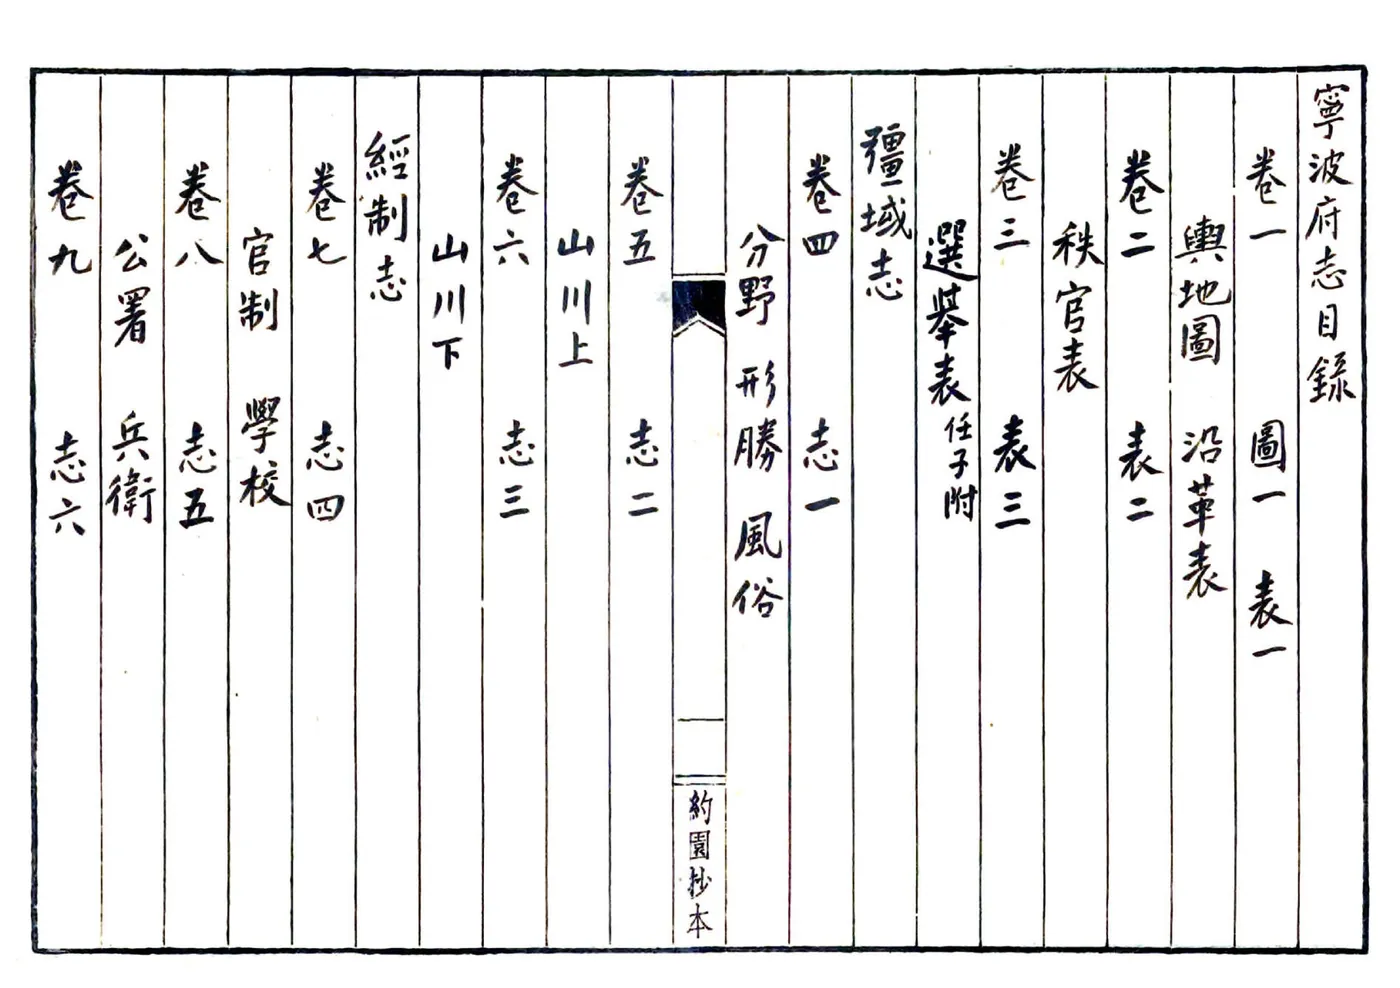 寧波府志目錄
卷一 圖一 表一
輿地圖 沿革表
卷二 表二
秩官表
卷三 表三
選舉表任子附
彊域志
卷四 志一
分野 形勝 風俗
約園抄本
卷五 志二
山川上
卷六 志三
山川下
經制志
卷七 志四
官制 學校
卷八 志五
公署 兵衛
卷九 志六